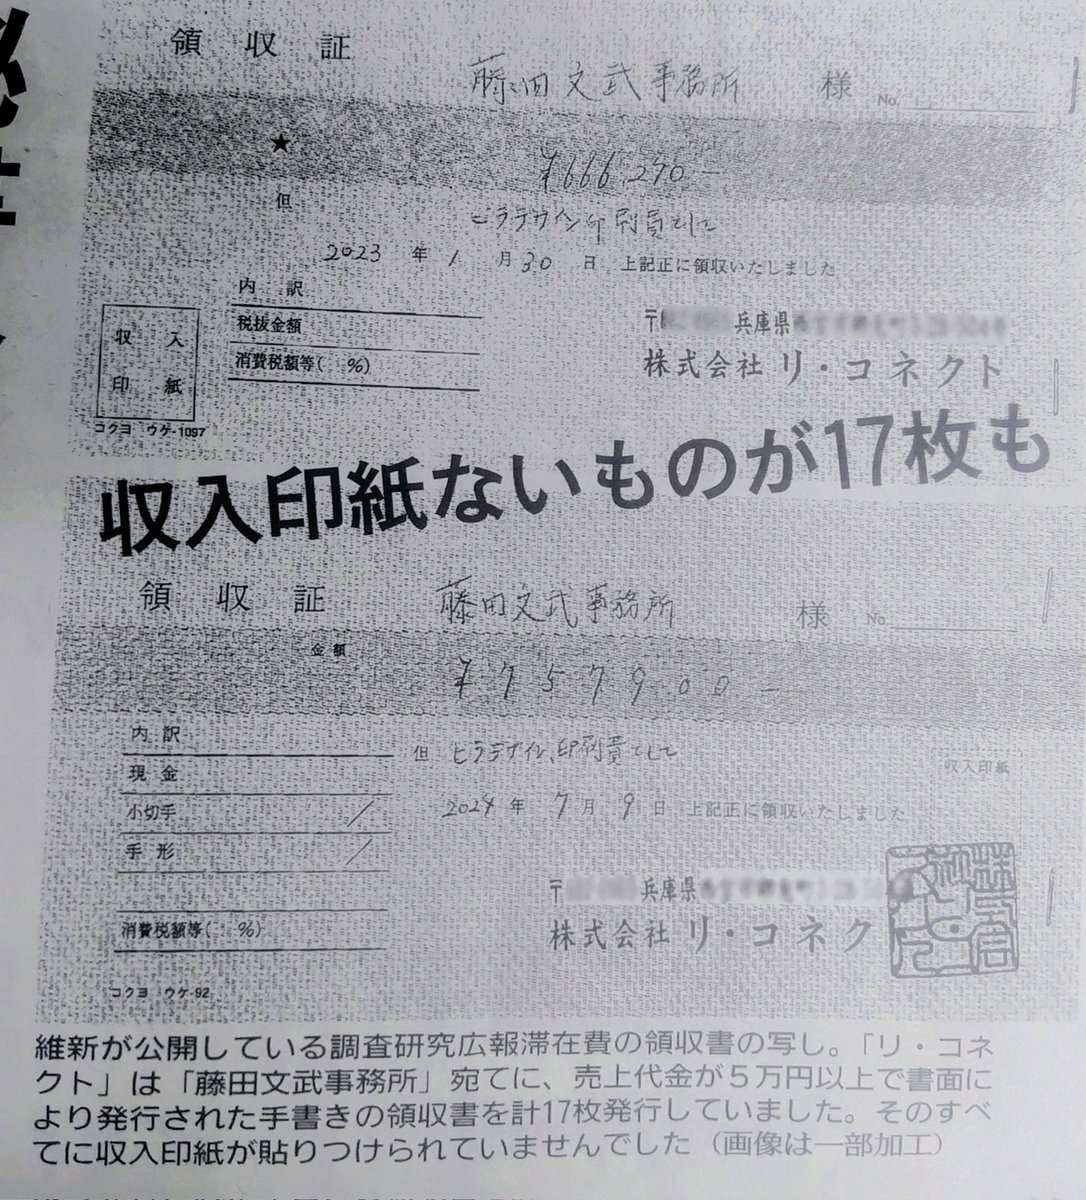 領収証
藤田文武事務所 様 No.
★ ¥666,290-
但 ニラデザイン印刷費として
2023年1月30日 上記正に領収いたしました
内訳
税抜金額
消費税額等( %)
収入
印紙
コクヨ ウケ-1097
〒 兵庫県
株式会社 リ・コネクト
収入印紙ないものが17枚も
領収証
藤田文武事務所 様 No
金額
¥757900-
内訳
但 ビラデザイン、印刷費として
収入印紙
現金
2024年7月9日 上記正に領収いたしました
小切手
手形
消費税額等( %)
〒 兵庫県
株式会社 リ・コネク
コクヨ ウケ-92
維新が公開している調査研究広報滞在費の領収書の写し。「リ・コネ
クト」は「藤田文武事務所」宛てに、売上代金が5万円以上で書面に
より発行された手書きの領収書を計17枚発行していました。そのすべ
てに収入印紙が貼りつけられていませんでした（画像は一部加工）